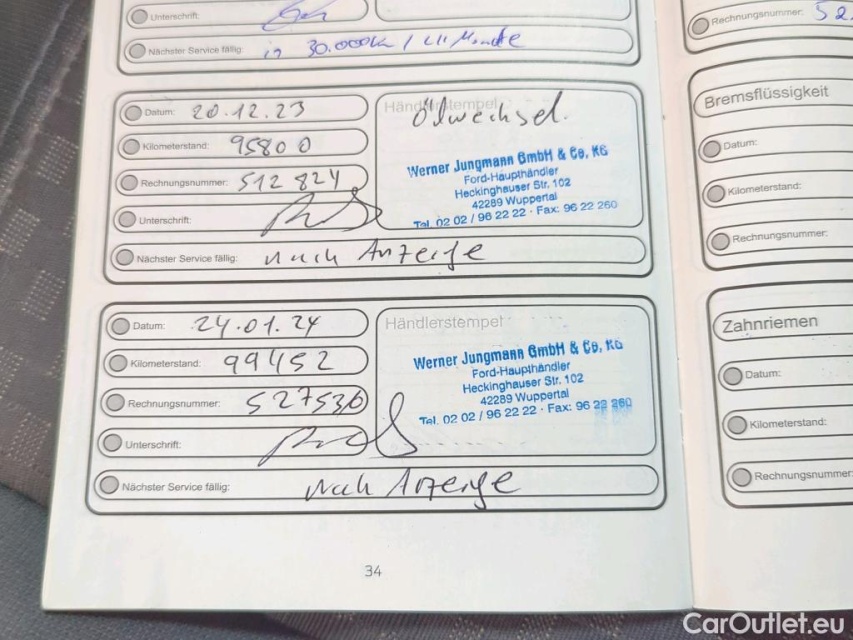 Unterschrift:
Nächster Service fällig: in 30.000km /
Datum: 20.12.23
Kilometerstand: 95800
Rechnungsnummer: 512 824
Unterschrift:
Nächster Service fällig: nach Anzeige
Händlerstempel
Ölwechsel.
Werner Jungmann GmbH & Co. KG
Ford-Haupthändler
Heckinghauser Str. 102
42289 Wuppertal
Tel. 02 02 / 96 22 22 · Fax: 96 22 260
Datum: 24.01.24
Kilometerstand: 99452
Rechnungsnummer: 527530
Unterschrift:
Nächster Service fällig: nach Anzeige
Händlerstempel
Werner Jungmann GmbH & Co. KG
Ford-Haupthändler
Heckinghauser Str. 102
42289 Wuppertal
Tel. 02 02 / 96 22 22 · Fax: 96 22 260
34
Rechnungsnummer: 52
Bremsflüssigkeit
Datum:
Kilometerstand:
Rechnungsnummer:
Zahnriemen
Datum:
Kilometerstand:
Rechnungsnummer:
CarOutlet.eu